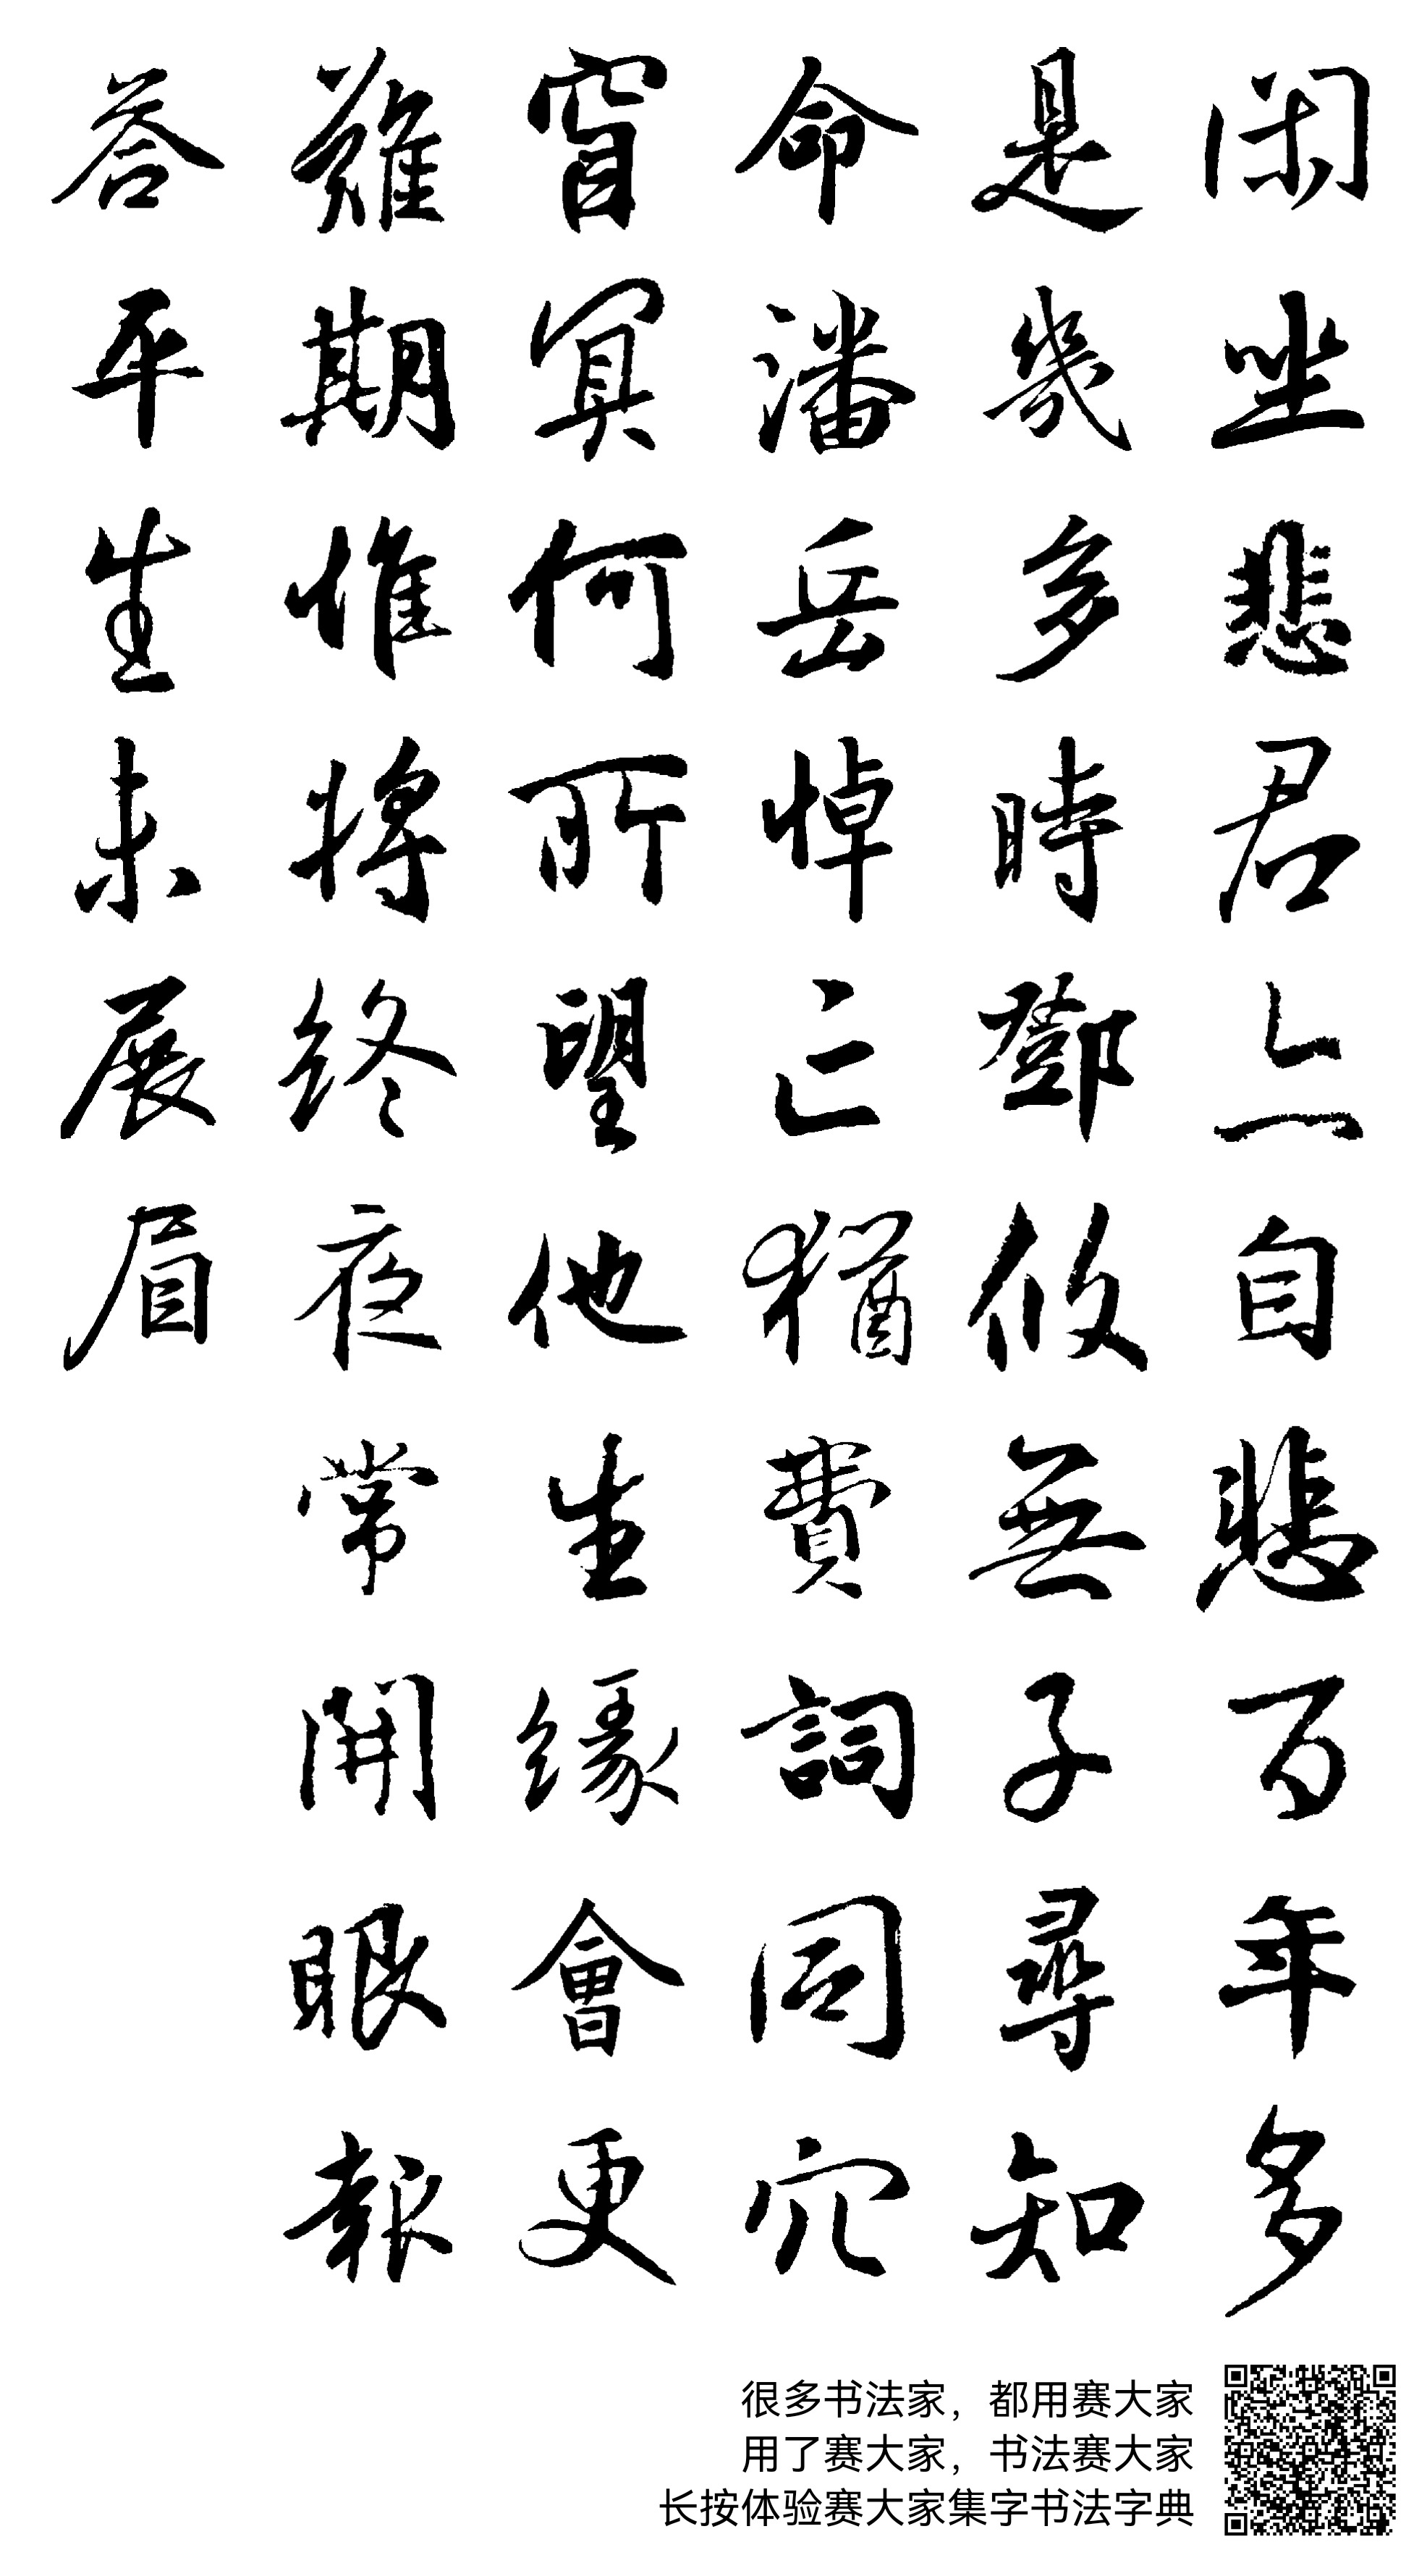 闲坐悲君亦自悲百年多
是幾多時鄧攸無子尋知
命潘岳悼亡猶費詞同穴
窅冥何所望他生缘會更
難期惟将终夜常開眼報
答平生未展眉
很多书法家，都用赛大家
用了赛大家，书法赛大家
长按体验赛大家集字书法字典